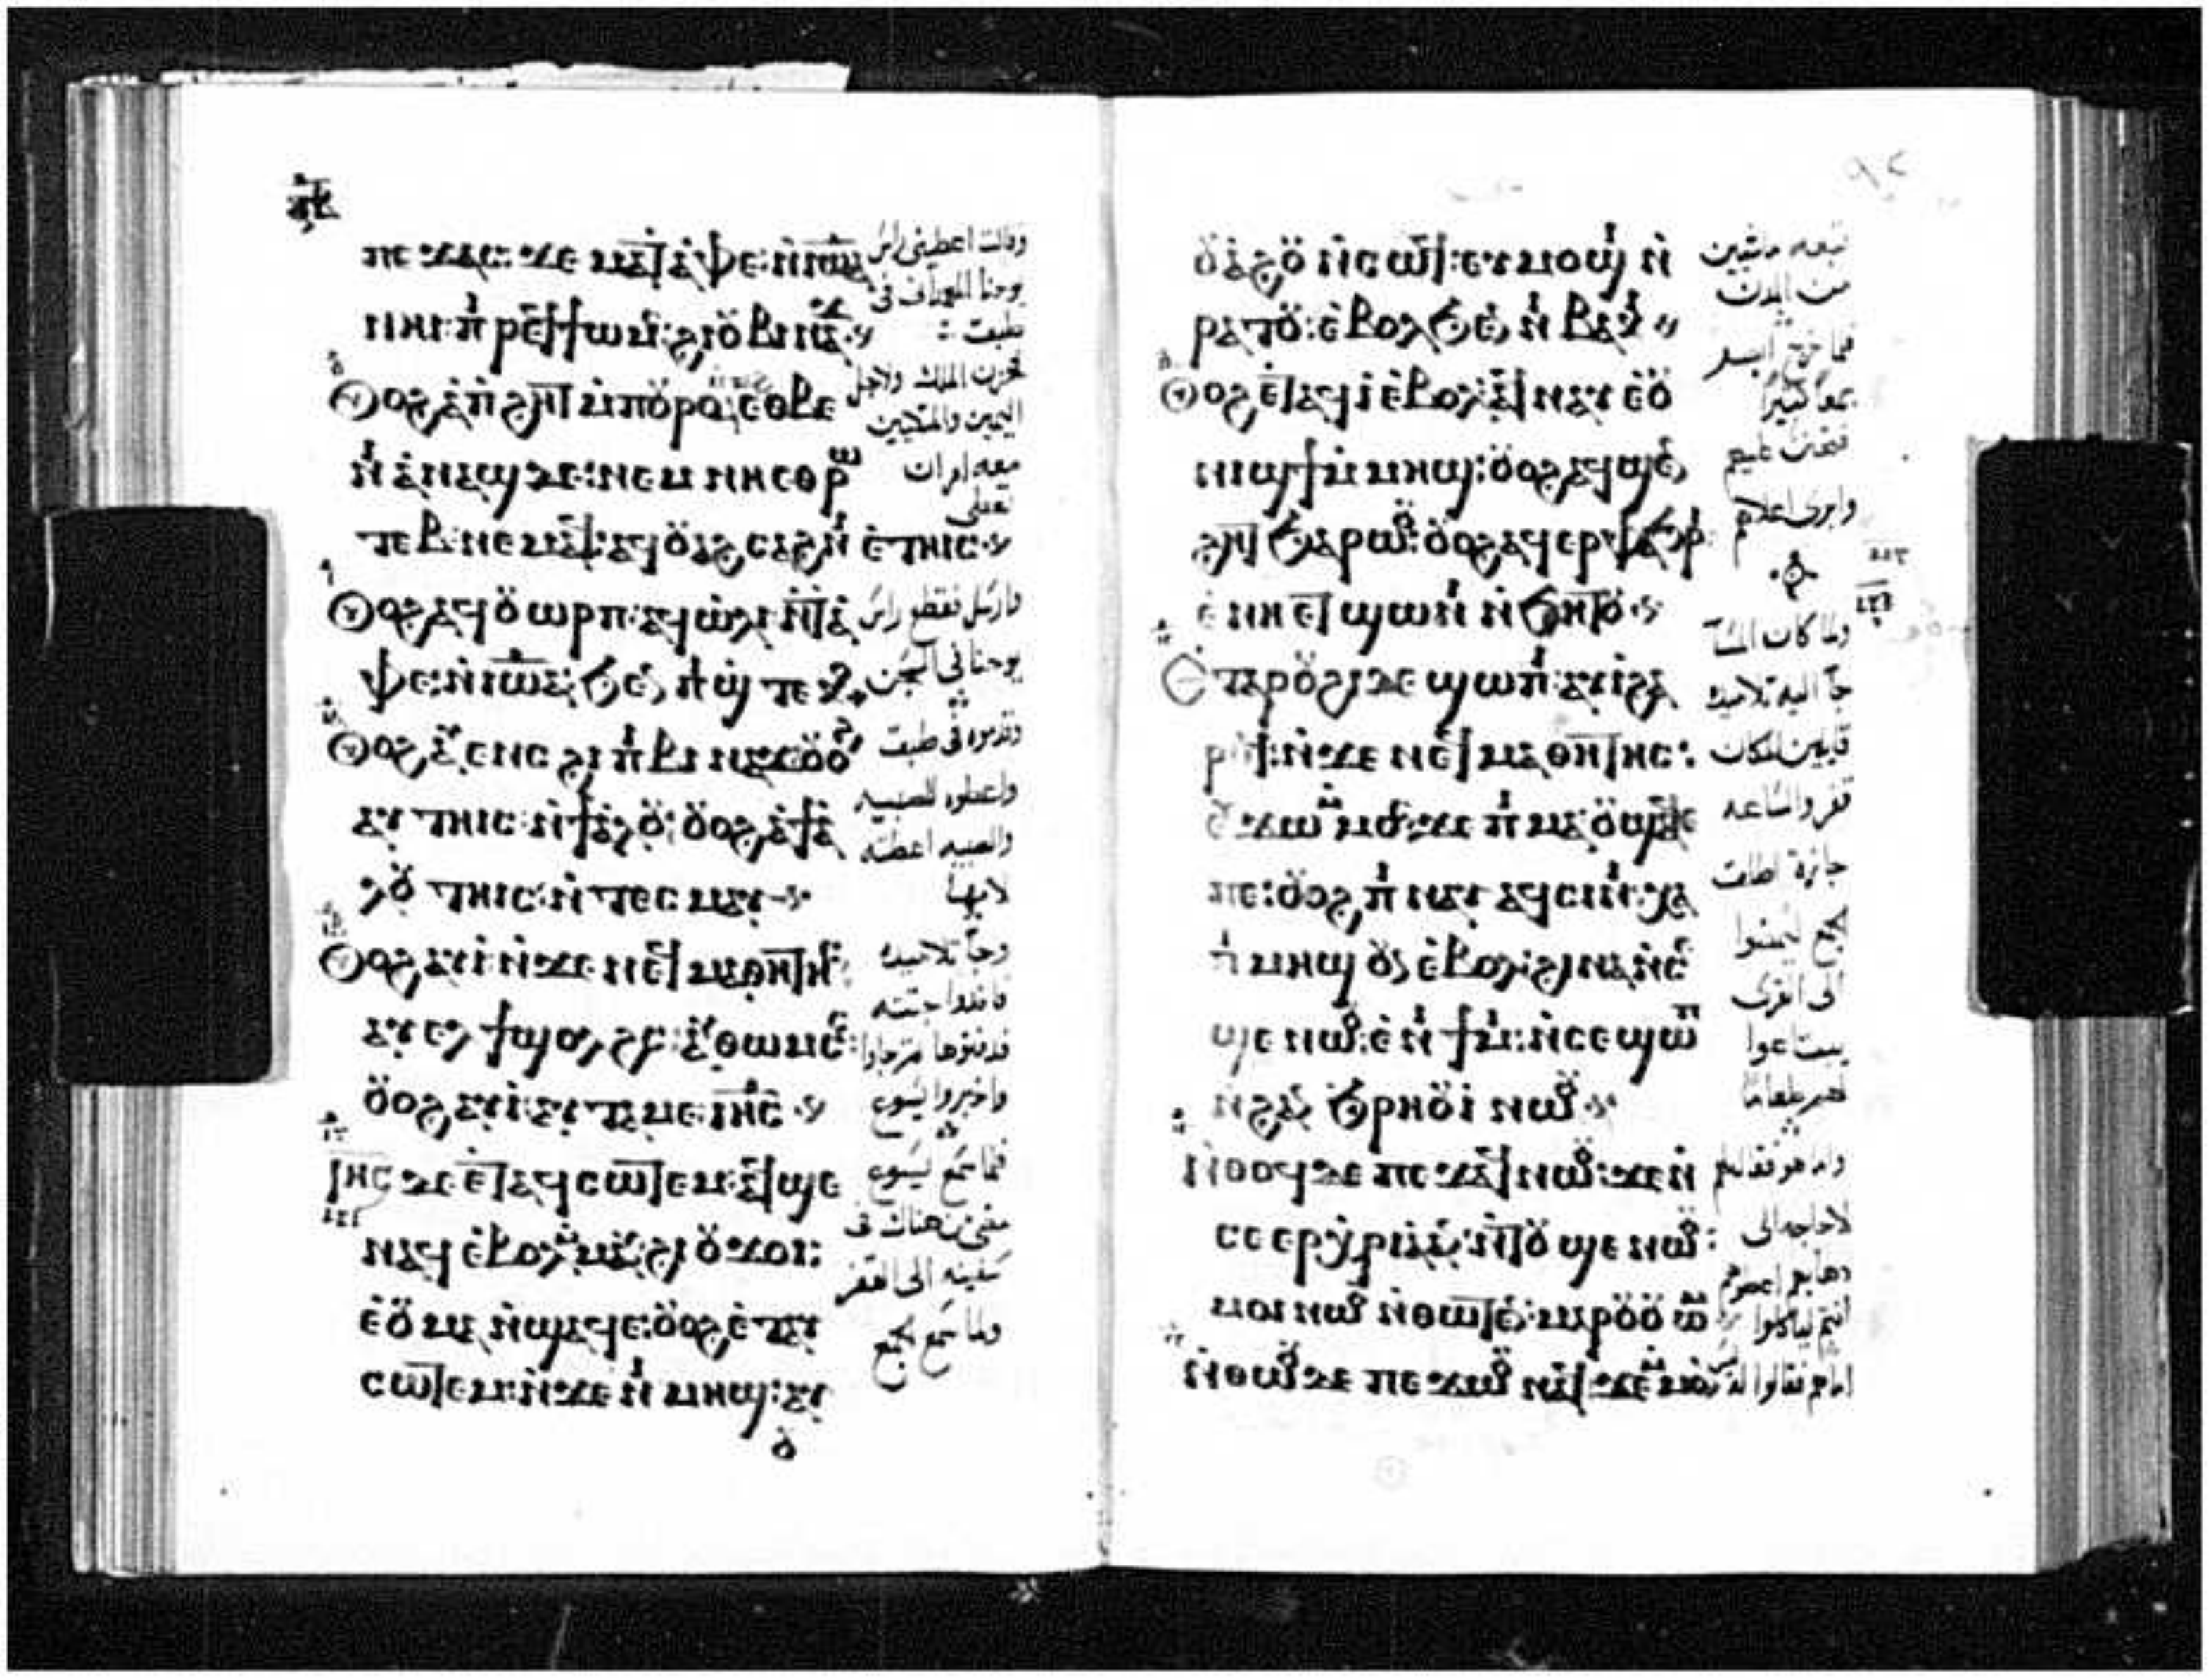 ⲡⲉϫⲁⲥ: ϫⲉ ⲙⲁⲧ ⲁ̀ⲫⲉ: ⲛ̀ⲓⲱⲁ
ⲛⲛⲏⲥ ⲡ̀ⲣⲉϥϯⲱⲙⲥ: ϩⲓ ⲟⲩⲃⲓⲛⲁϫ
ⲟⲩⲟϩ ⲁ̀ ⲡ̀ϩⲏⲧ ⲙ̀ⲡⲟⲩⲣⲟ: ⲉⲑⲃⲉ
ⲛⲓⲁⲛⲁϣ ⲇⲉ: ⲛⲉⲙ ⲛⲏⲉⲑⲣⲱ
ⲧⲉⲃ ⲛⲉⲙⲁϥ: ⲁϥⲟⲩⲁϩⲥⲁϩⲛⲓ ⲉ̀ⲧⲏⲓⲥ
ⲟⲩⲟϩ ⲁϥⲟⲩⲱⲣⲡ: ⲁϥⲱ̀ⲗⲓ ⲛ̀ⲧⲁ̀
ⲫⲉ: ⲛ̀ⲓⲱⲁ: ϧⲉⲛ ⲡⲓϣⲧⲉⲕⲟ
ⲟⲩⲟϩ ⲁⲩⲉⲛⲥ ϩⲓ ⲡⲓⲃⲓⲛⲁϫ ⲟⲩⲟϩ
ⲁⲩⲧⲏⲓⲥ: ⲛ̀ϯⲁ̀ⲗⲟⲩ: ⲟⲩⲟϩ ⲁ̀ ϯⲁ̀
ⲗⲟⲩ ⲧⲏⲓⲥ: ⲛ̀ⲧⲉⲥⲙⲁⲩ
ⲟⲩⲟϩ ⲁⲩⲓ̀ ⲛ̀ϫⲉ ⲛⲉϥⲙⲁⲑⲏⲧⲏⲥ:
ⲁⲩⲉⲗ ϯϣⲟⲗϩⲥ: ⲁⲩⲑⲱⲙⲥ:
ⲟⲩⲟϩ ⲁⲩⲓ̀: ⲁⲩⲧⲁⲙⲉ ⲓⲏⲥ
ⲓⲏⲥ ⲇⲉ ⲉ̀ⲧⲁϥⲥⲱⲧⲉⲙ: ⲁϥϣⲉ
ⲛⲁϥ ⲉ̀ⲃⲟⲗ ⲙ̀ⲙⲁⲩ: ϩⲓ ⲟⲩϫⲟⲓ:
ⲉ̀ⲟⲩⲙⲁ ⲛ̀ϣⲁϥⲉ: ⲟⲩⲟϩ ⲉ̀ⲧⲁⲩ
ⲥⲱⲧⲉⲙ: ⲛ̀ϫⲉ ⲛⲓⲙⲏϣ: ⲁⲩ
ⲟⲩ
وقالت اعطيني راس
يوحنا المعمدان في
طبق
فحزن الملك ولاجل
اليمين والمتكيين
معه امر ان
تعطى
وارسل فقطع راس
يوحنا في السجن
وقدموه في طبق
واعطوه للصبيه
والصبيه اعطته
لامها
وجا تلاميذه
فاخذوا جثته
فدفنوها ثم جاوا
واخبروا يسوع
فلما سمع يسوع
مضى من هناك في
سفينه الى القفر
ولما سمع الجمع
ⲟⲩⲁϩⲟⲩ ⲛ̀ⲥⲱϥ: ⲉⲩⲙⲟϣⲓ ⲛ̀
ⲣⲁⲧⲟⲩ: ⲉ̀ⲃⲟⲗϧⲉⲛ ⲛⲓⲃⲁⲕⲓ
ⲟⲩⲟϩ ⲉ̀ⲧⲁϥⲓ̀ ⲉ̀ⲃⲟⲗ: ⲁϥⲛⲁⲩ ⲉ̀ⲟⲩ
ⲛⲓϣϯ ⲙ̀ⲙⲏϣ: ⲟⲩⲟϩ ⲁϥϣⲉⲛ
ϩⲏⲧ ϧⲁⲣⲱⲟⲩ: ⲟⲩⲟϩ ⲁϥⲉⲣⲫⲁϧⲣⲓ
ⲉ̀ⲛⲏⲉⲧϣⲱⲛⲓ ⲛ̀ϧⲏⲧⲟⲩ
ⲉ̀ⲧⲁⲣⲟⲩϩⲓ ⲇⲉ ϣⲱⲡⲓ: ⲁⲩⲓ̀ ϩⲁ
ⲣⲟϥ: ⲛ̀ϫⲉ ⲛⲉϥⲙⲁⲑⲏⲧⲏⲥ:
ⲉⲩϫⲱ ⲙ̀ⲙⲟⲥ: ϫⲉ ⲡⲓⲙⲁ ⲟⲩϣⲁϥⲉ
ⲡⲉ: ⲟⲩⲟϩ ⲡⲓⲛⲁⲩ ⲁϥⲥⲓⲛⲓ: ⲭⲁ
ⲡⲓⲙⲏϣ ⲟⲩⲛ ⲉ̀ⲃⲟⲗ: ϩⲓⲛⲁ ⲛ̀ⲥⲉ
ϣⲉ ⲛⲱⲟⲩ: ⲉ̀ⲛⲓϯⲙⲓ: ⲛ̀ⲥⲉϣⲱⲡ
ⲛ̀ϩⲁⲛ ϧⲣⲏⲟⲩⲓ̀ ⲛⲱⲟⲩ
ⲛ̀ⲑⲟϥ ⲇⲉ ⲡⲉϫⲁϥ ⲛⲱⲟⲩ: ϫⲉ ⲛ̀
ⲥⲉⲉⲣⲭⲣⲓⲁ ⲁⲛ: ⲛ̀ⲧⲟⲩϣⲉ ⲛⲱⲟⲩ:
ⲙⲟⲓ ⲛⲱⲟⲩ ⲛ̀ⲑⲱⲧⲉⲛ: ⲙⲁⲣⲟⲩⲟⲩⲱⲙ
ⲛ̀ⲑⲱⲟⲩ ⲇⲉ ⲡⲉϫⲱⲟⲩ ⲛⲁϥ: ϫⲉ ⲙ̀ⲙⲟⲛ
تبعه ماشيين
من المدن
فلما خرج ابصر
جمعا كثيرا
فتحنن عليهم
وابرى اعلاهم
ولما كان المسا
جا اليه تلاميذه
قايلين المكان
قفر والساعه
جازت اطلق
الجمع ليمضوا
الى القرى
يبتاعوا
لهم طعاما
واما هو فقال لهم
لا حاجه الى
ذهابهم اعطوهم
انتم لياكلوا
اما هم فقالوا له